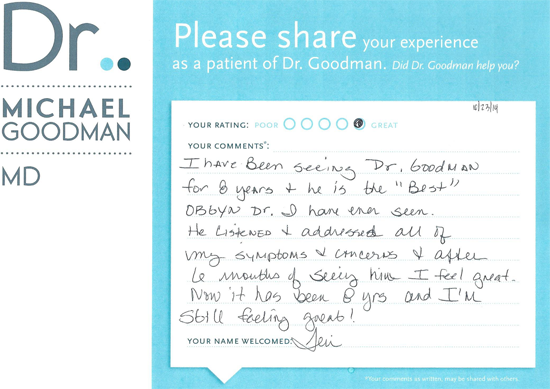 Dr..
MICHAEL
GOODMAN
MD
Please share your experience
as a patient of Dr. Goodman. Did Dr. Goodman help you?
YOUR RATING: POOR GREAT
YOUR COMMENTS*:
I have Been seeing Dr. Goodman
for 8 years + he is the "Best"
OBGYN Dr. I have ever seen.
He Listened + addressed all of
my symptoms + concerns + after
6 months of seeing him I feel great.
Now it has been 8 yrs and I'm
Still feeling great!
YOUR NAME WELCOMED:
*Your comments as written, may be shared with others.